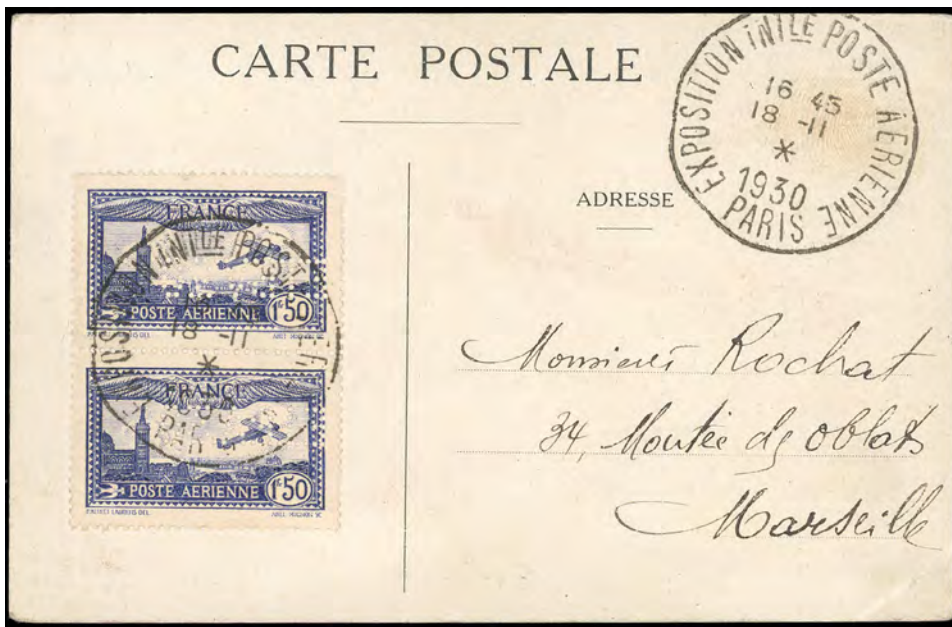 CARTE POSTALE
EXPOSITION INTLE POSTE AÉRIENNE
16 45
18 -11
*
1930
PARIS
ADRESSE
FRANCE
POSTE AÉRIENNE 1F50
18 -11
*
FRANCE
POSTE AÉRIENNE 1F50
Monsieur Rochat
34, Montée des Oblats
Marseille